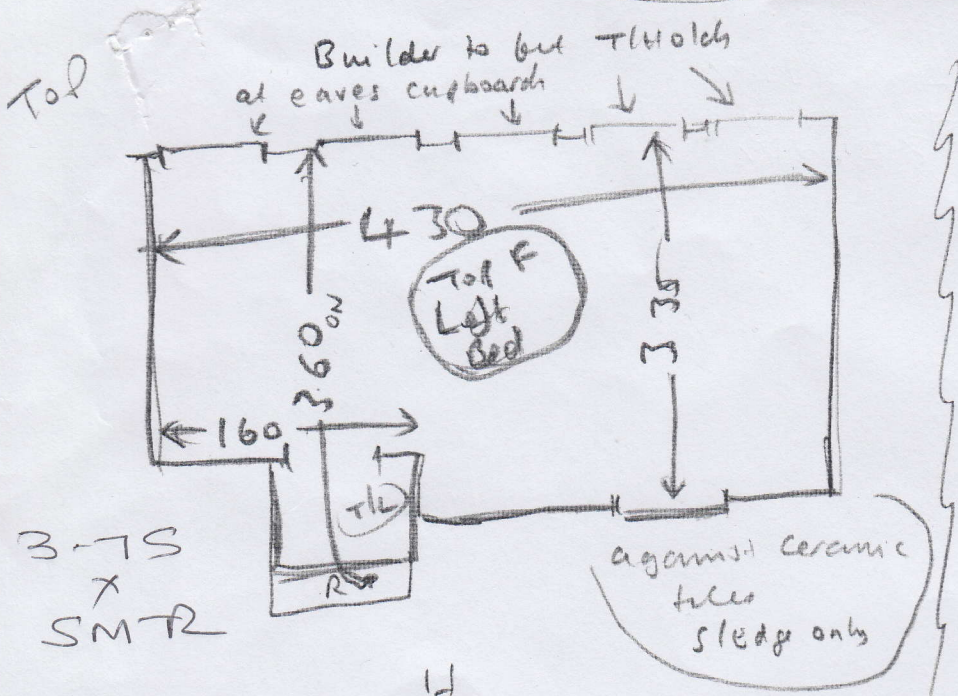 Top
Builder to put T/Holds
at eaves cupboards
430
Top F
Left
Bed
360 ON
3 35
160
T/L
R
3-75
x
5MTR
against ceramic
tiles
sledge only